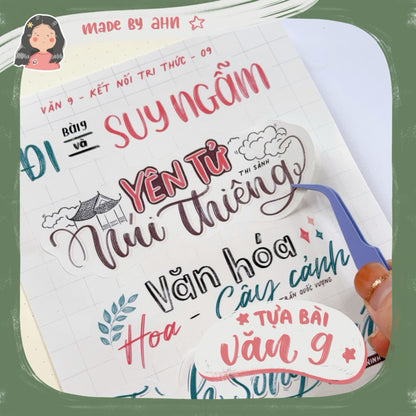 MADE BY AHN
VĂN 9 - KẾT NỐI TRI THỨC - 09
Bài 9
ĐI và SUY NGẪM
YÊN TỬ
THI SẢNH
Núi Thiêng
Văn hóa
Hoa - Cây cảnh
TRẦN QUỐC VƯỢNG
TỰA BÀI
Văn 9